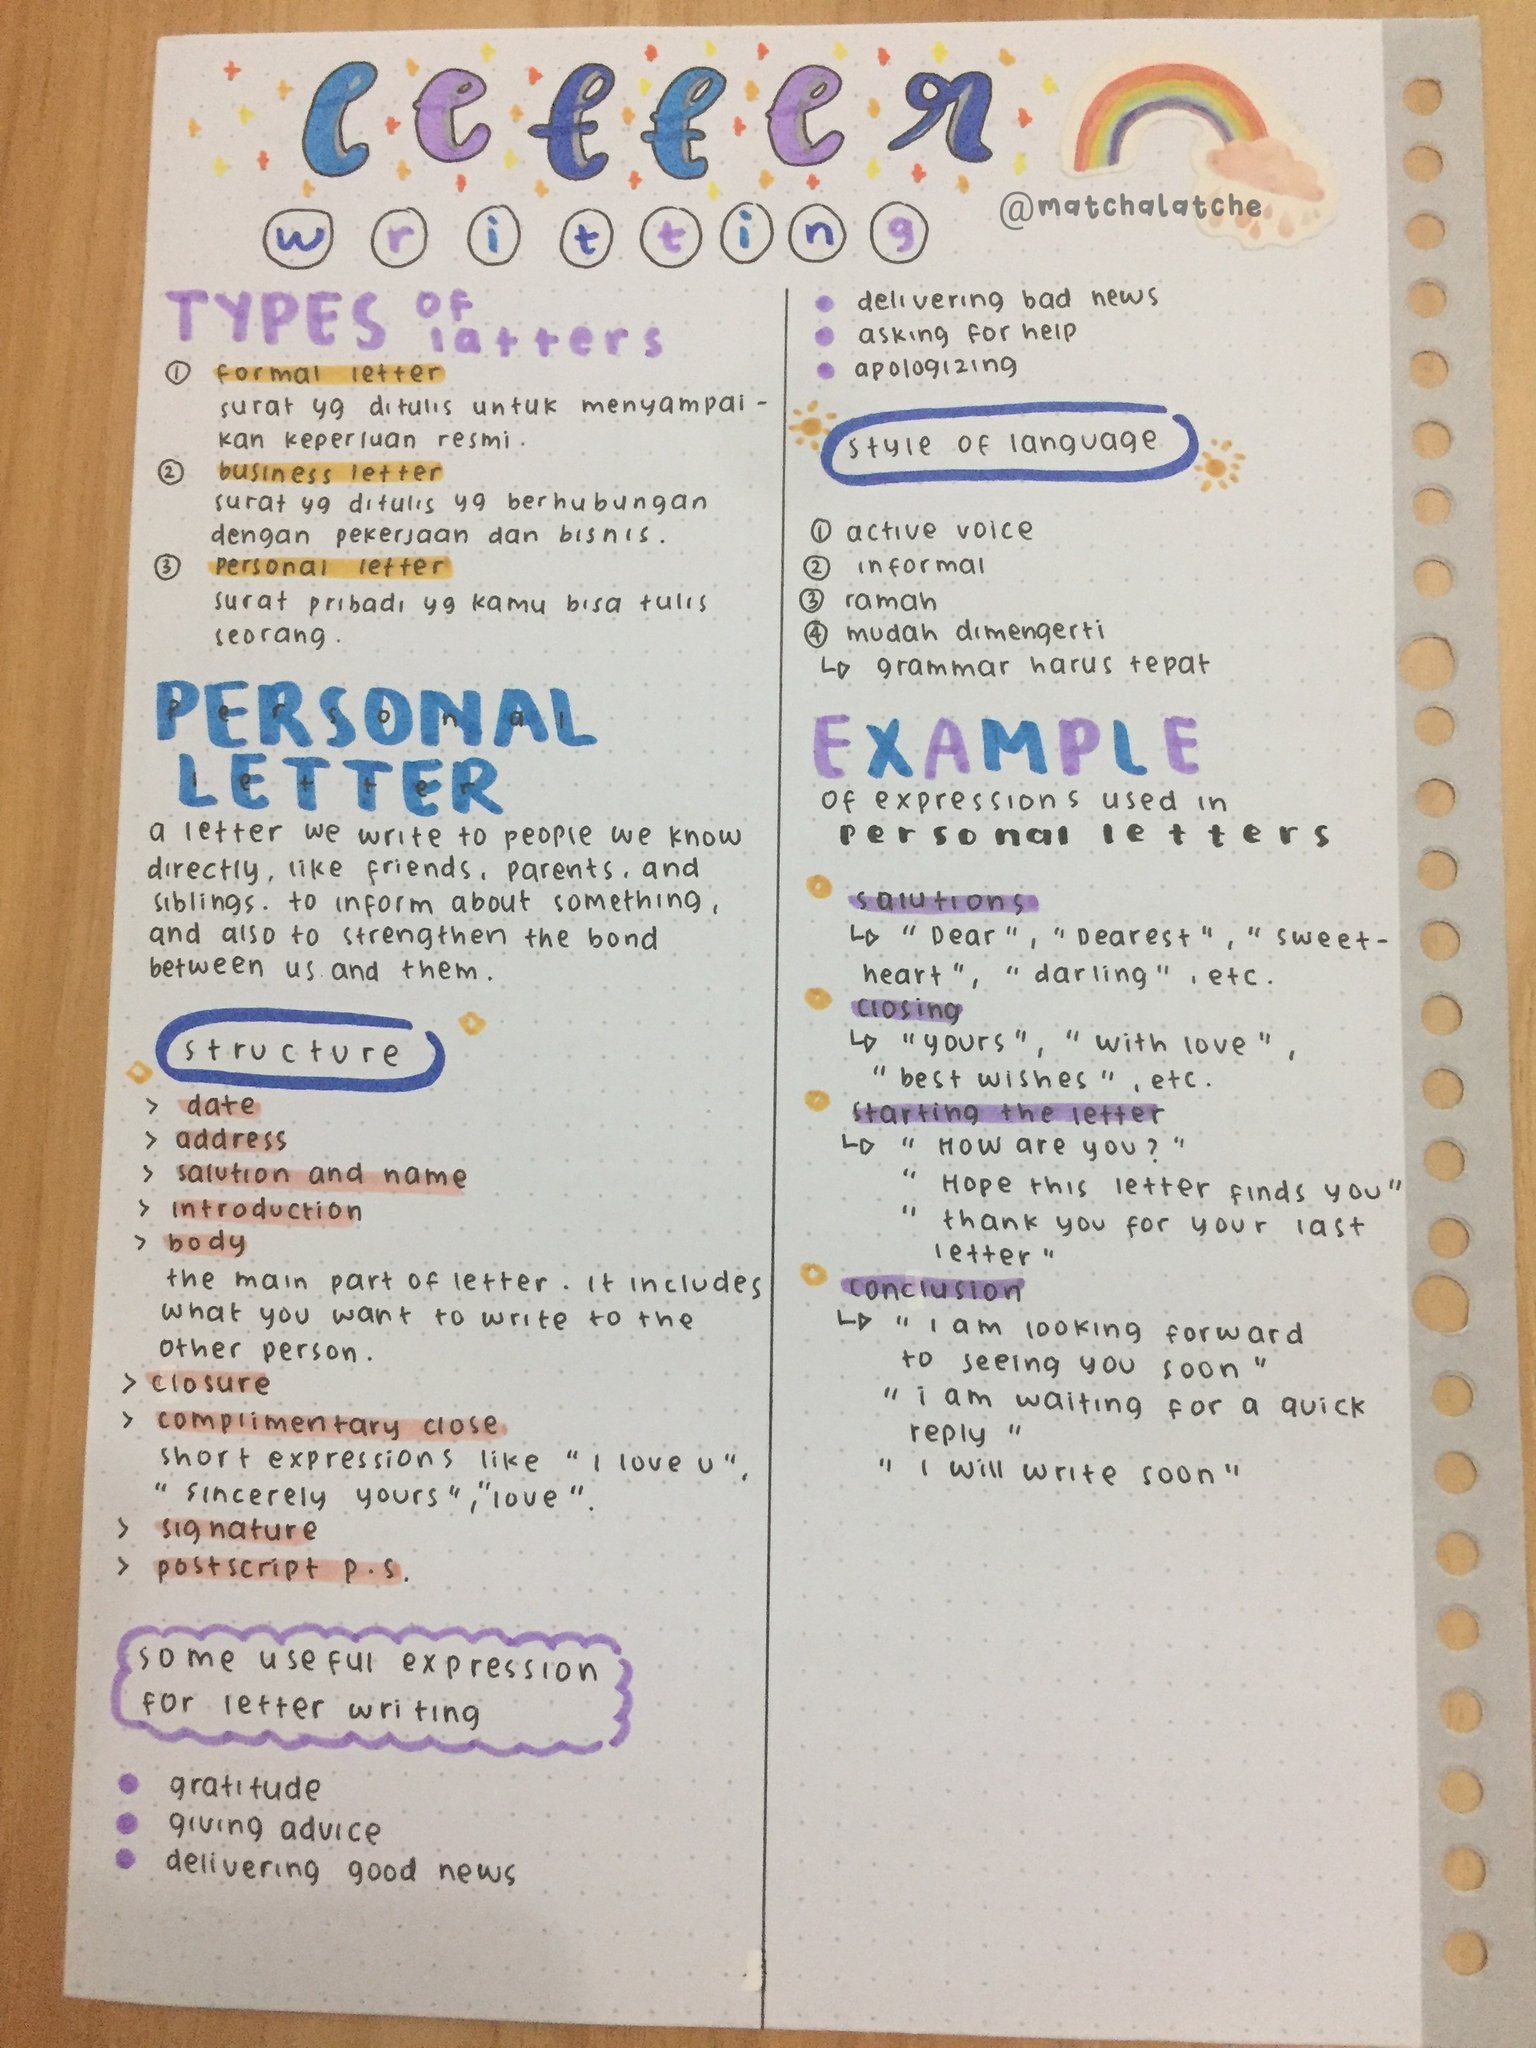 letter
writting
@matchalatche
TYPES of
latters
① formal letter
surat yg ditulis untuk menyampai-
kan keperluan resmi.
② business letter
surat yg ditulis yg berhubungan
dengan pekerjaan dan bisnis.
③ personal letter
surat pribadi yg kamu bisa tulis
seorang.
PERSONAL
personal
LETTER
letter
a letter we write to people we know
directly, like friends, parents, and
siblings. to inform about something,
and also to strengthen the bond
between us and them.
structure
> date
> address
> salution and name
> introduction
> body
the main part of letter. it includes
what you want to write to the
other person.
> closure
> complimentary close
short expressions like "I love u",
"sincerely yours", "love".
> signature
> postscript p.s.
some useful expression
for letter writing
gratitude
giving advice
delivering good news
delivering bad news
asking for help
apologizing
style of language
① active voice
② informal
③ ramah
④ mudah dimengerti
↳ grammar harus tepat
EXAMPLE
of expressions used in
personal letters
salutions
↳ "Dear", "Dearest", "sweet-
heart", "darling", etc.
closing
↳ "yours", "with love",
"best wishes", etc.
starting the letter
↳ "How are you?"
"Hope this letter finds you"
"thank you for your last
letter"
conclusion
↳ "i am looking forward
to seeing you soon"
"i am waiting for a quick
reply"
"I will write soon"